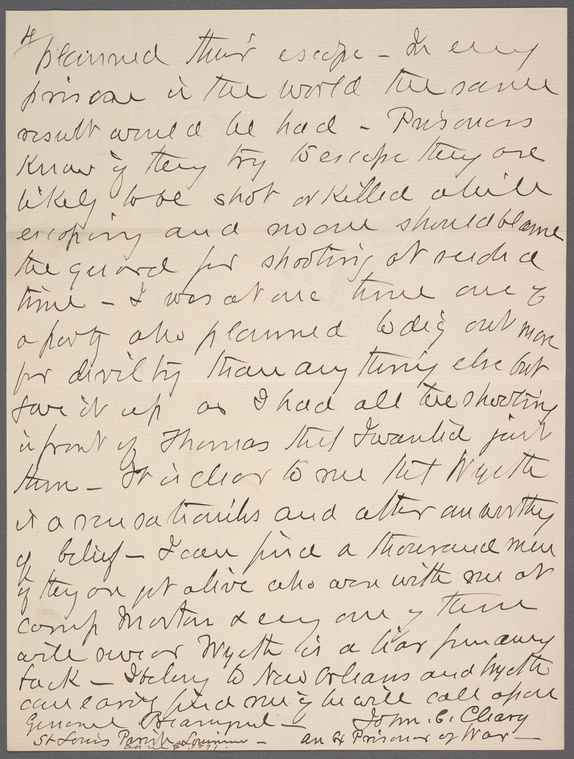 4
planned their escape – In every
prison in the world the same
result would be had – Prisoners
know if they try to escape they are
likely to be shot or killed while
escaping and no one should blame
the guard for shooting at such a
time – I was at one time one of
a party who planned to dig out more
for divilty than any thing else but
gave it up as I had all the shooting
in front of Thomas that I wanted just
then – It is clear to me that Wyeth
is a sensationilis and utter unworthy
of belief – I can find a thousand men
if they are yet alive who were with me at
camp Morton & every one of them
will swear Wyeth is a liar from away
back – I belong to New Orleans and Wyeth
can easily find me if he will call upon
General Beauregard – John C. Cleary
St Louis Parish Louisiana – an Ex Prisoner of War –